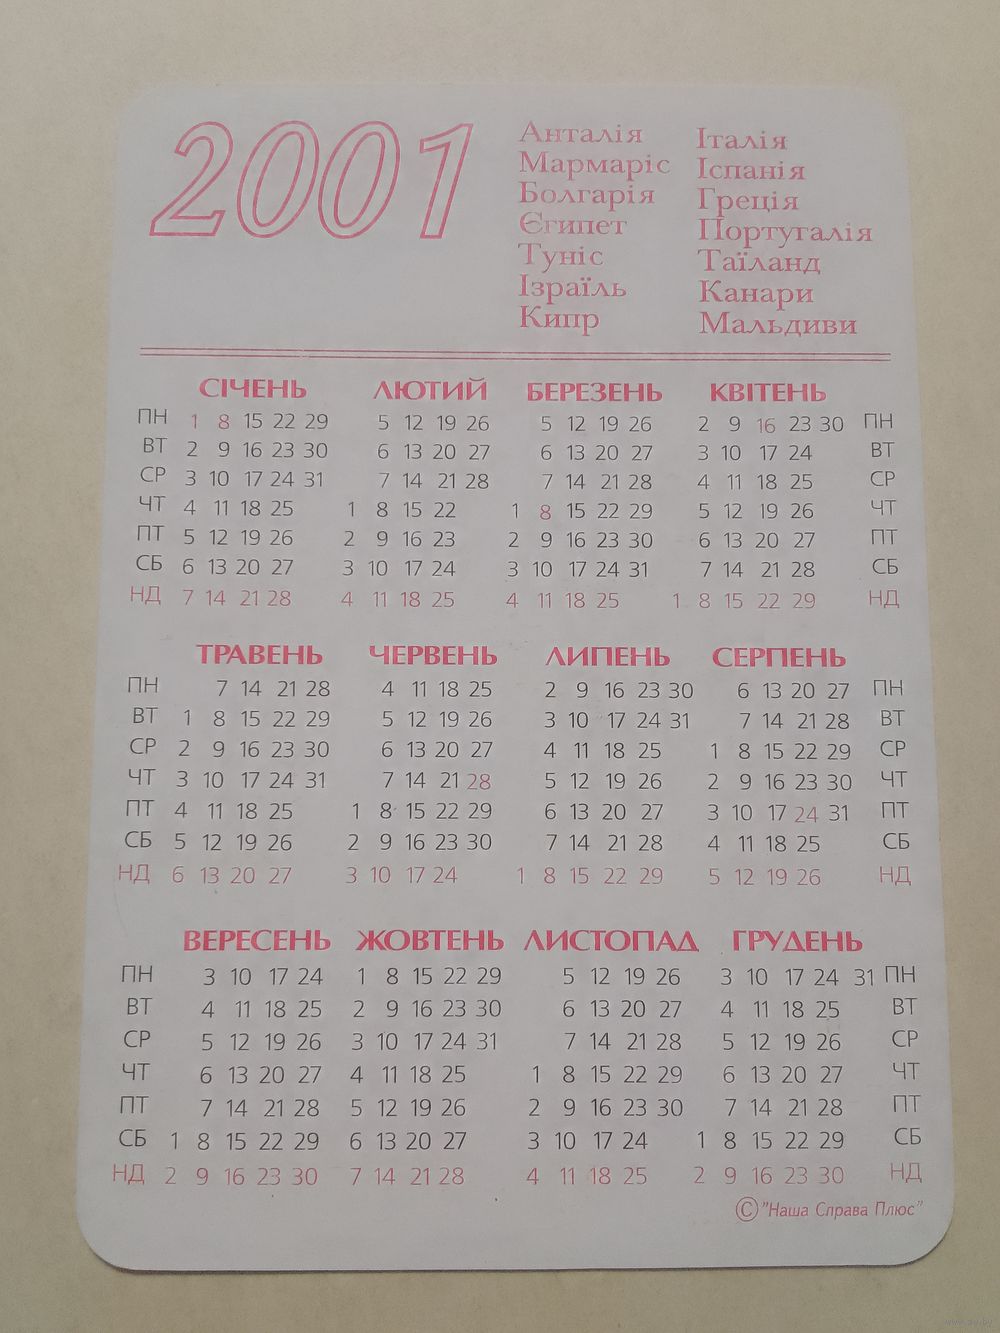 2001
Анталія
Мармаріс
Болгарія
Єгипет
Туніс
Ізраїль
Кипр
Італія
Іспанія
Греція
Португалія
Таїланд
Канари
Мальдиви
СІЧЕНЬ ЛЮТИЙ БЕРЕЗЕНЬ КВІТЕНЬ
ПН 1 8 15 22 29 5 12 19 26 5 12 19 26 2 9 16 23 30 ПН
ВТ 2 9 16 23 30 6 13 20 27 6 13 20 27 3 10 17 24 ВТ
СР 3 10 17 24 31 7 14 21 28 7 14 21 28 4 11 18 25 СР
ЧТ 4 11 18 25 1 8 15 22 1 8 15 22 29 5 12 19 26 ЧТ
ПТ 5 12 19 26 2 9 16 23 2 9 16 23 30 6 13 20 27 ПТ
СБ 6 13 20 27 3 10 17 24 3 10 17 24 31 7 14 21 28 СБ
НД 7 14 21 28 4 11 18 25 4 11 18 25 1 8 15 22 29 НД
ТРАВЕНЬ ЧЕРВЕНЬ ЛИПЕНЬ СЕРПЕНЬ
ПН 7 14 21 28 4 11 18 25 2 9 16 23 30 6 13 20 27 ПН
ВТ 1 8 15 22 29 5 12 19 26 3 10 17 24 31 7 14 21 28 ВТ
СР 2 9 16 23 30 6 13 20 27 4 11 18 25 1 8 15 22 29 СР
ЧТ 3 10 17 24 31 7 14 21 28 5 12 19 26 2 9 16 23 30 ЧТ
ПТ 4 11 18 25 1 8 15 22 29 6 13 20 27 3 10 17 24 31 ПТ
СБ 5 12 19 26 2 9 16 23 30 7 14 21 28 4 11 18 25 СБ
НД 6 13 20 27 3 10 17 24 1 8 15 22 29 5 12 19 26 НД
ВЕРЕСЕНЬ ЖОВТЕНЬ ЛИСТОПАД ГРУДЕНЬ
ПН 3 10 17 24 1 8 15 22 29 5 12 19 26 3 10 17 24 31 ПН
ВТ 4 11 18 25 2 9 16 23 30 6 13 20 27 4 11 18 25 ВТ
СР 5 12 19 26 3 10 17 24 31 7 14 21 28 5 12 19 26 СР
ЧТ 6 13 20 27 4 11 18 25 1 8 15 22 29 6 13 20 27 ЧТ
ПТ 7 14 21 28 5 12 19 26 2 9 16 23 30 7 14 21 28 ПТ
СБ 1 8 15 22 29 6 13 20 27 3 10 17 24 1 8 15 22 29 СБ
НД 2 9 16 23 30 7 14 21 28 4 11 18 25 2 9 16 23 30 НД
©"Наша Справа Плюс"